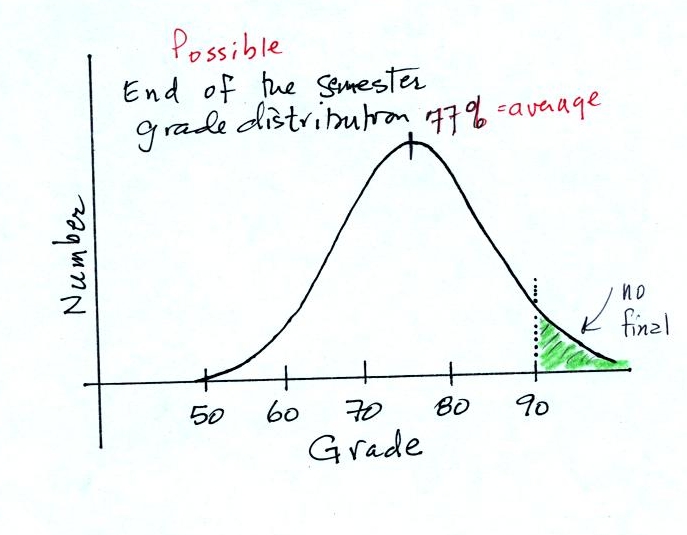 Possible
End of the semester
grade distribution 77% = average
Number
no
final
50 60 70 80 90
Grade